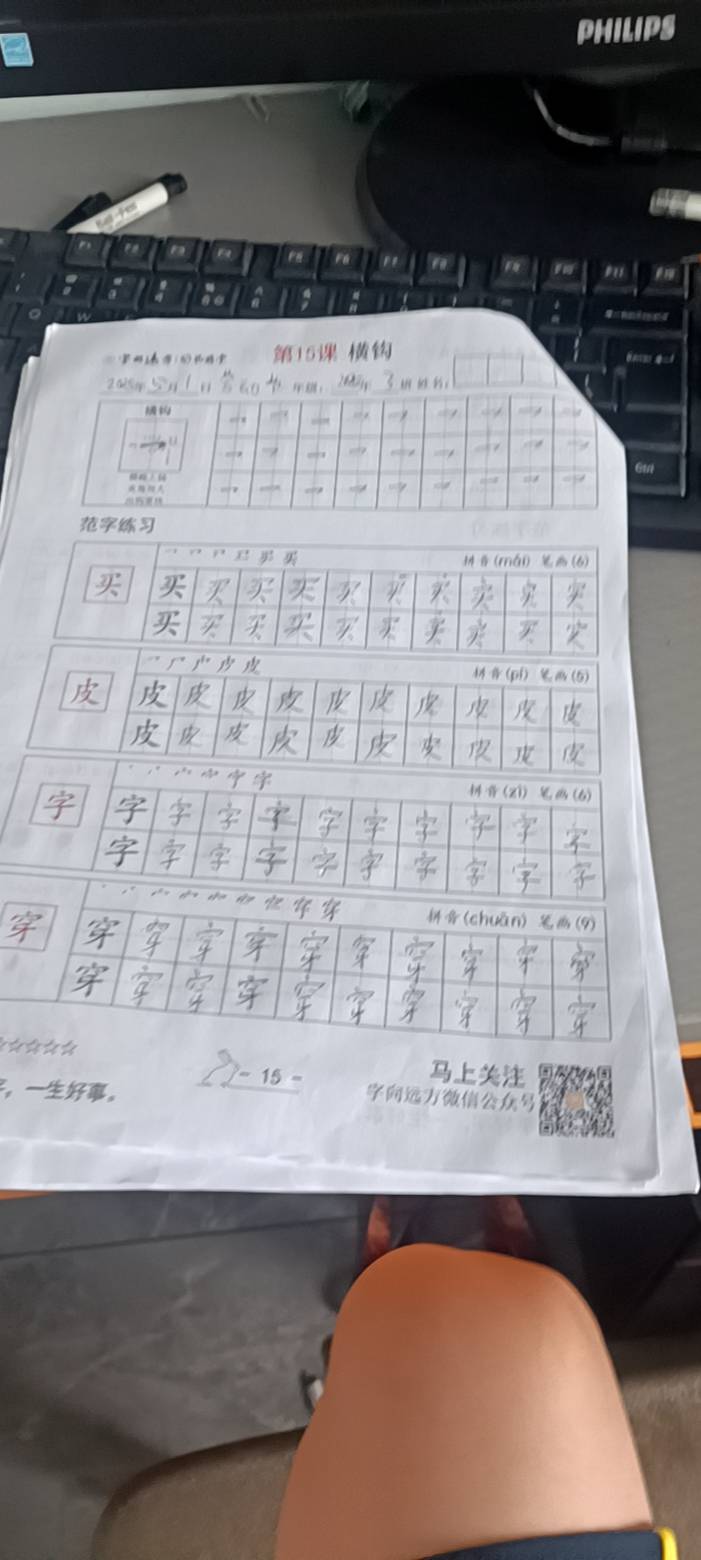 PHILIPS
F1 F2 F3 F4 F5 F6 F7 F8 F9 F10 F11 F12
Ctrl
第15课 横钩
横钩
范字练习
买 拼音(mǎi) 笔画(6)
买 买 买 买 买 买 买 买 买 买
买 买 买 买 买 买 买 买 买 买
皮 拼音(pí) 笔画(5)
皮 皮 皮 皮 皮 皮 皮 皮 皮 皮
皮 皮 皮 皮 皮 皮 皮 皮 皮 皮
字 拼音(zì) 笔画(6)
字 字 字 字 字 字 字 字 字 字
字 字 字 字 字 字 字 字 字 字
穿 拼音(chuān) 笔画(9)
穿 穿 穿 穿 穿 穿 穿 穿 穿 穿
穿 穿 穿 穿 穿 穿 穿 穿 穿 穿
☆☆☆☆☆
，一生好事。
- 15 -
马上关注
字向远方微信公众号